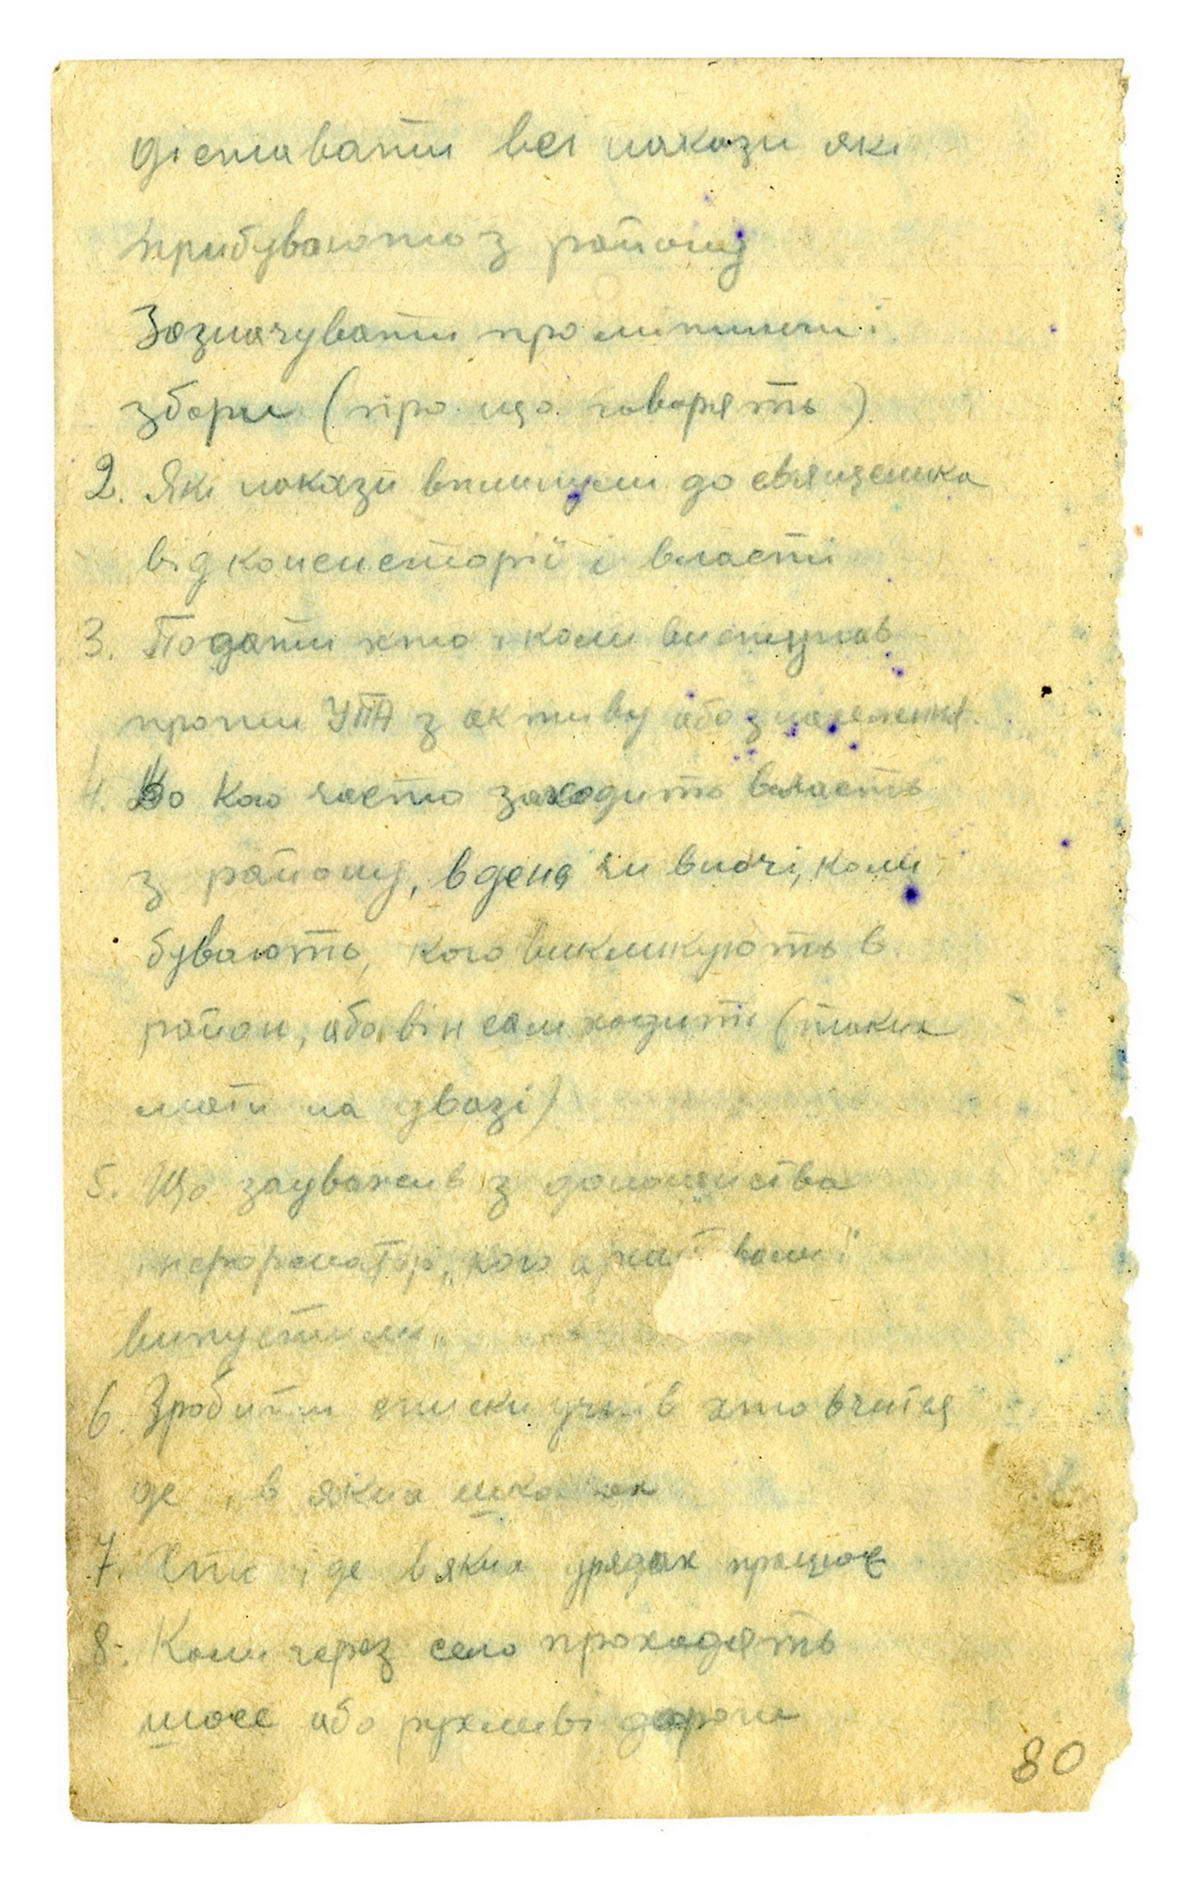 діставати всі накази які
прибувають з району
Зазначувати про мітинги і
збори (про що говорять)
2. Які накази вплинули до священика
від консисторії і власті
3. Подати хто і коли виступав
проти УПА з активу або
4. До кого часто заходить власть
з району, вдень чи вночі, коли
бувають, кого викликують в
район, або він сам ходить (таких
мати на увазі)
5. Що зауважив з
кого і
випустили.
6. Зробити списки учнів хто вчится
де, в яких школах
7. Хто і де в яких урядах працює
8. Коли через село проходять
шосе або рухливі дороги
80